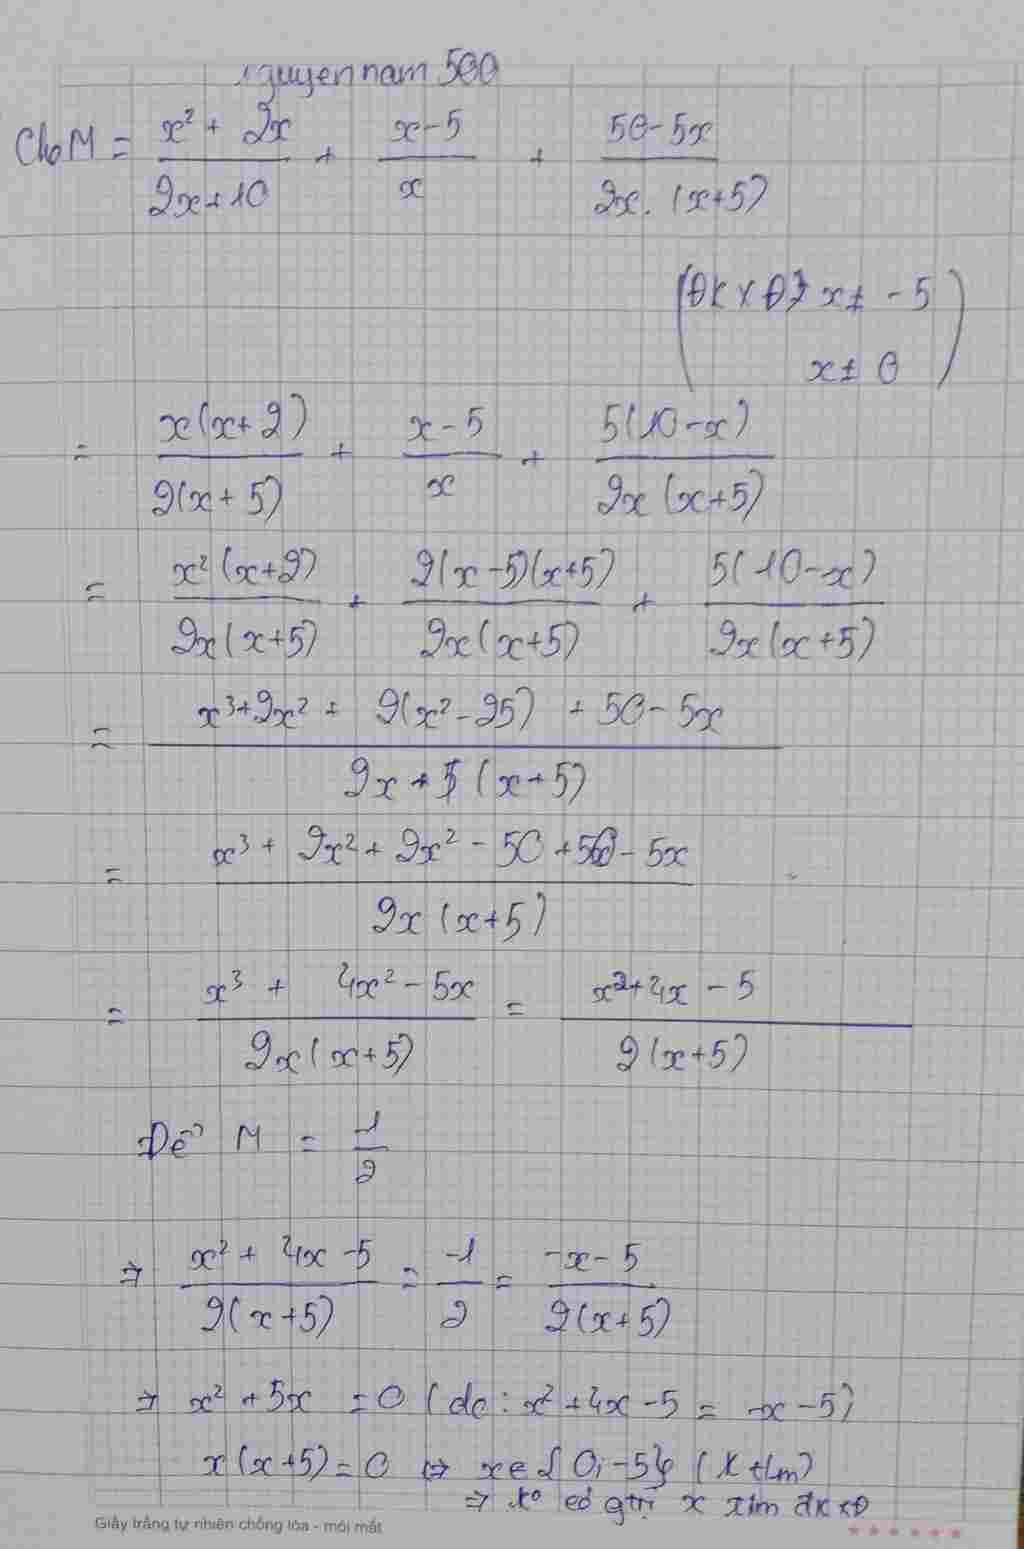 nguyennam 500
Cho M = \frac{x² + 2x}{2x+10} + \frac{x-5}{x} + \frac{50-5x}{2x.(x+5)}
(ĐKXĐ: x ≠ -5
x ≠ 0)
= \frac{x(x+2)}{2(x+5)} + \frac{x-5}{x} + \frac{5(10-x)}{2x(x+5)}
= \frac{x²(x+2)}{2x(x+5)} + \frac{2(x-5)(x+5)}{2x(x+5)} + \frac{5(10-x)}{2x(x+5)}
= \frac{x³+2x² + 2(x²-25) + 50-5x}{2x (x+5)}
= \frac{x³ + 2x² + 2x² - 50 + 50 - 5x}{2x(x+5)}
= \frac{x³ + 4x² - 5x}{2x(x+5)} = \frac{x²+4x - 5}{2(x+5)}
Để M = \frac{-1}{2}
⇒ \frac{x² + 4x - 5}{2(x+5)} = \frac{-1}{2} = \frac{-x-5}{2(x+5)}
⇒ x² + 5x = 0 (do: x² + 4x - 5 = -x - 5)
x(x+5) = 0 ⇔ x ∈ {0; -5} (K t/m)
⇒ ko có gtrị x t/m ĐKXĐ
Giấy trắng tự nhiên chống lóa - mỏi mắt